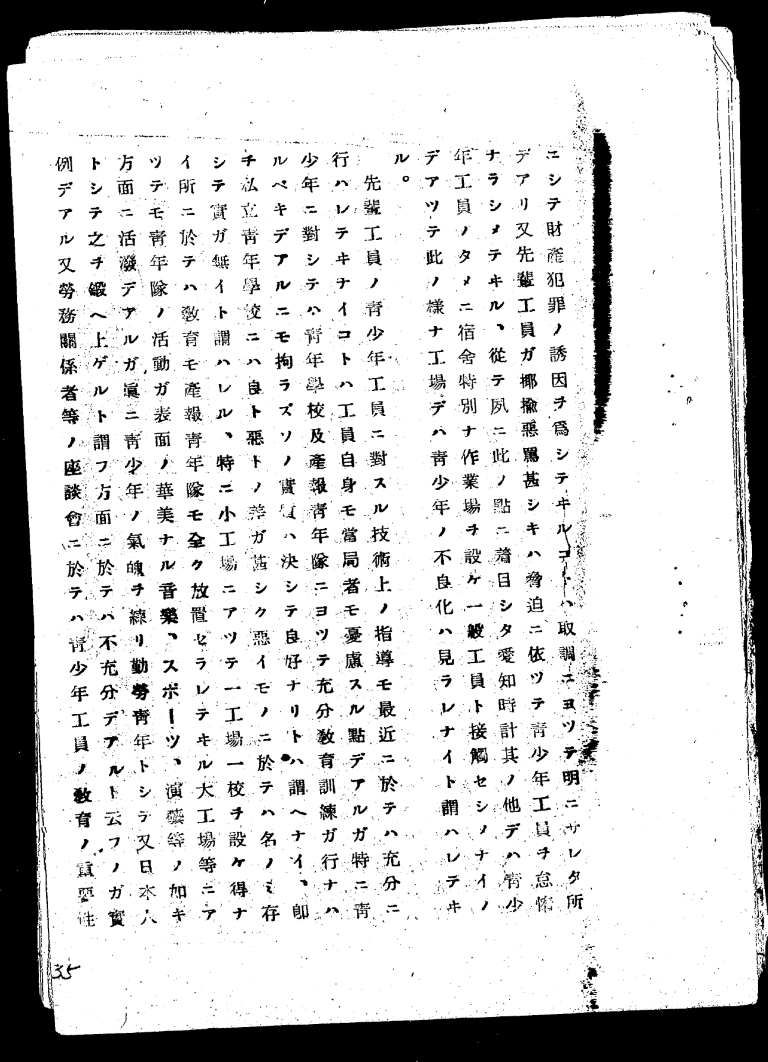 ニシテ財產犯罪ノ誘因ヲ爲シテヰルコトハ取調ニヨツテ明ニサレタ所
デアリ又先輩工員ガ揶揄惡罵甚シキハ脅迫ニ依ツテ青少年工員ヲ怠惰
ナラシメテキル、從テ夙ニ此ノ點ニ着目シタ愛知時計其ノ他デハ青少
年工員ノタメニ宿舍特別ナ作業場ヲ設ケ一般工員ト接觸セシメナイノ
デアツテ此ノ樣ナ工場デハ青少年ノ不良化ハ見ラレナイト謂ハレテキ
ル。
先輩工員ノ青少年工員ニ對スル技術上ノ指導モ最近ニ於テハ充分ニ
行ハレテキナイコトハ工員自身モ當局者モ憂慮スル點デアルガ特ニ青
少年ニ對シテハ青年學校及產報青年隊ニヨツテ充分敎育訓練ガ行ナハ
ルベキデアルニモ拘ラズソノ實質ハ決シテ良好ナリトハ謂ヘナイ、卽
チ私立青年學校ニハ良ト惡トノ差ガ甚シク惡イモノニ於テハ名ノミ存
シテ實ガ無イト謂ハレル、特ニ小工場ニアツテ一工場一校ヲ設ケ得ナ
イ所ニ於テハ敎育モ產報青年隊モ全ク放置セラレテキル大工場等ニア
ツテモ青年隊ノ活動ガ表面ノ華美ナル音樂、スポーツ、演藝等ノ如キ
方面ニ活潑デアルガ眞ニ青少年ノ氣魄ヲ練リ勤勞青年トシテ又日本人
トシテ之ヲ鍛ヘ上ゲルト謂フ方面ニ於テハ不充分デアルト云フノガ實
例デアル又勞務關係者等ノ座談會ニ於テハ青少年工員ノ敎育ノ重要性
35